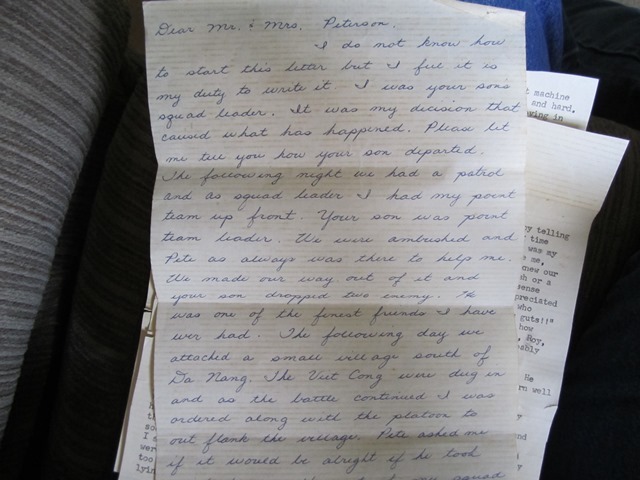 Dear Mr. & Mrs. Peterson,
I do not know how
to start this letter but I feel it is
my duty to write it. I was your son's
squad leader. It was my decision that
caused what has happened. Please let
me tell you how your son departed.
The following night we had a patrol
and as squad leader I had my point
team up front. Your son was point
team leader. We were ambushed and
Pete as always was there to help me.
We made our way out of it and
your son dropped two enemy. He
was one of the finest friends I have
ever had. The following day we
attacked a small village south of
Da Nang. The Viet Cong were dug in
and as the battle continued I was
ordered along with the platoon to
out flank the village. Pete asked me
if it would be alright if he took
my squad
machine
and hard.
in
telling
time
was my
me,
knew our
or a
sense
who
guts!!"
how
Roy,
He
well
I
were
too